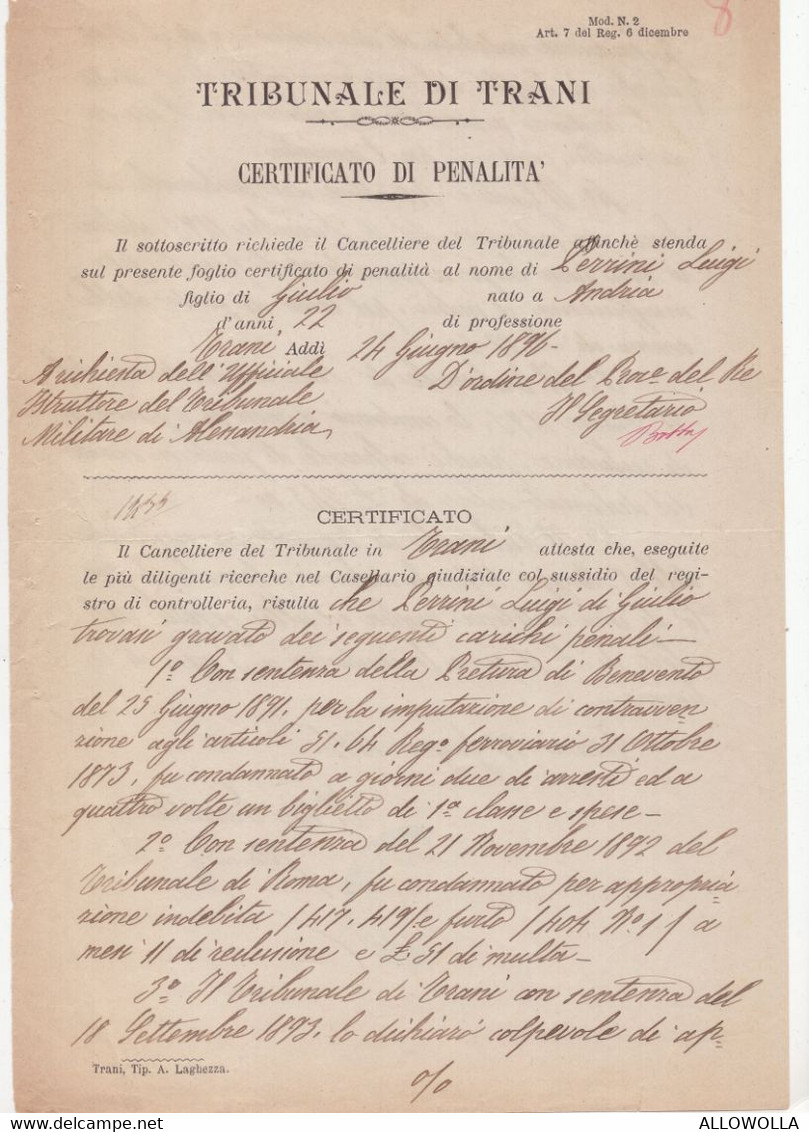 8
Mod. N. 2
Art. 7 del Reg. 6 dicembre
TRIBUNALE DI TRANI
CERTIFICATO DI PENALITA'
Il sottoscritto richiede il Cancelliere del Tribunale affinchè stenda
sul presente foglio certificato di penalità al nome di Perrini Luigi
figlio di Giulio nato a Andria
d'anni 22 di professione
Trani Addì 24 Giugno 1896-
A richiesta dell'Ufficiale D'ordine del Proc.e del Re
Istruttore del Tribunale Il Segretario
Militare di Alessandria
CERTIFICATO
Il Cancelliere del Tribunale in Trani attesta che, eseguite
le più diligenti ricerche nel Casellario giudiziale col sussidio del regi-
stro di controlleria, risulta che Perrini Luigi di Giulio
trovasi gravato dei seguenti carichi penali—
1º Con sentenza della Pretura di Benevento
del 25 Giugno 1891. per la imputazione di contravven
zione agli articoli 51. 64 Rego ferroviario 31 Ottobre
1873, fu condannato a giorni due di arresti ed a
quattro volte un biglietto di 1a classe e spese-
2º Con sentenza del 21 Novembre 1892 del
Tribunale di Roma, fu condannato per appropria
zione indebita /417. 419/ e furto /404 No. 1/ a
mesi 11 di reclusione e £ 51 di multa-
3º Il Tribunale di Trani con sentenza del
18 Settembre 1893. lo dichiarò colpevole di ap=
Trani, Tip. A. Laghezza.
%
ALLOWOLLA